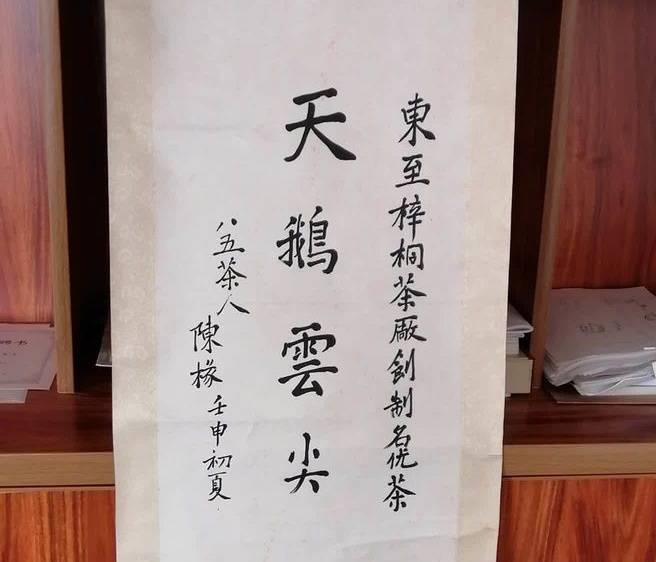 東至梓桐茶厰創制名优茶
天鵝雲尖
八五茶人
陳椽壬申初夏